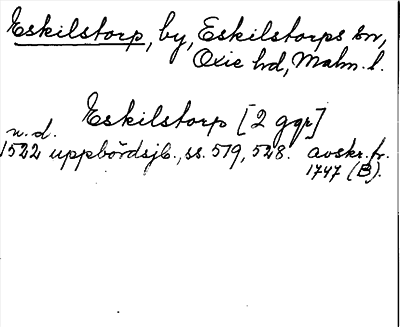 Eskilstorp, by, Eskilstorps sn,
Oxie hd, Malm. l.
Eskilstorp [2 ggr]
n.d.
1522 uppbördsjb., ss. 519, 528. avskr. fr.
1747 (B).